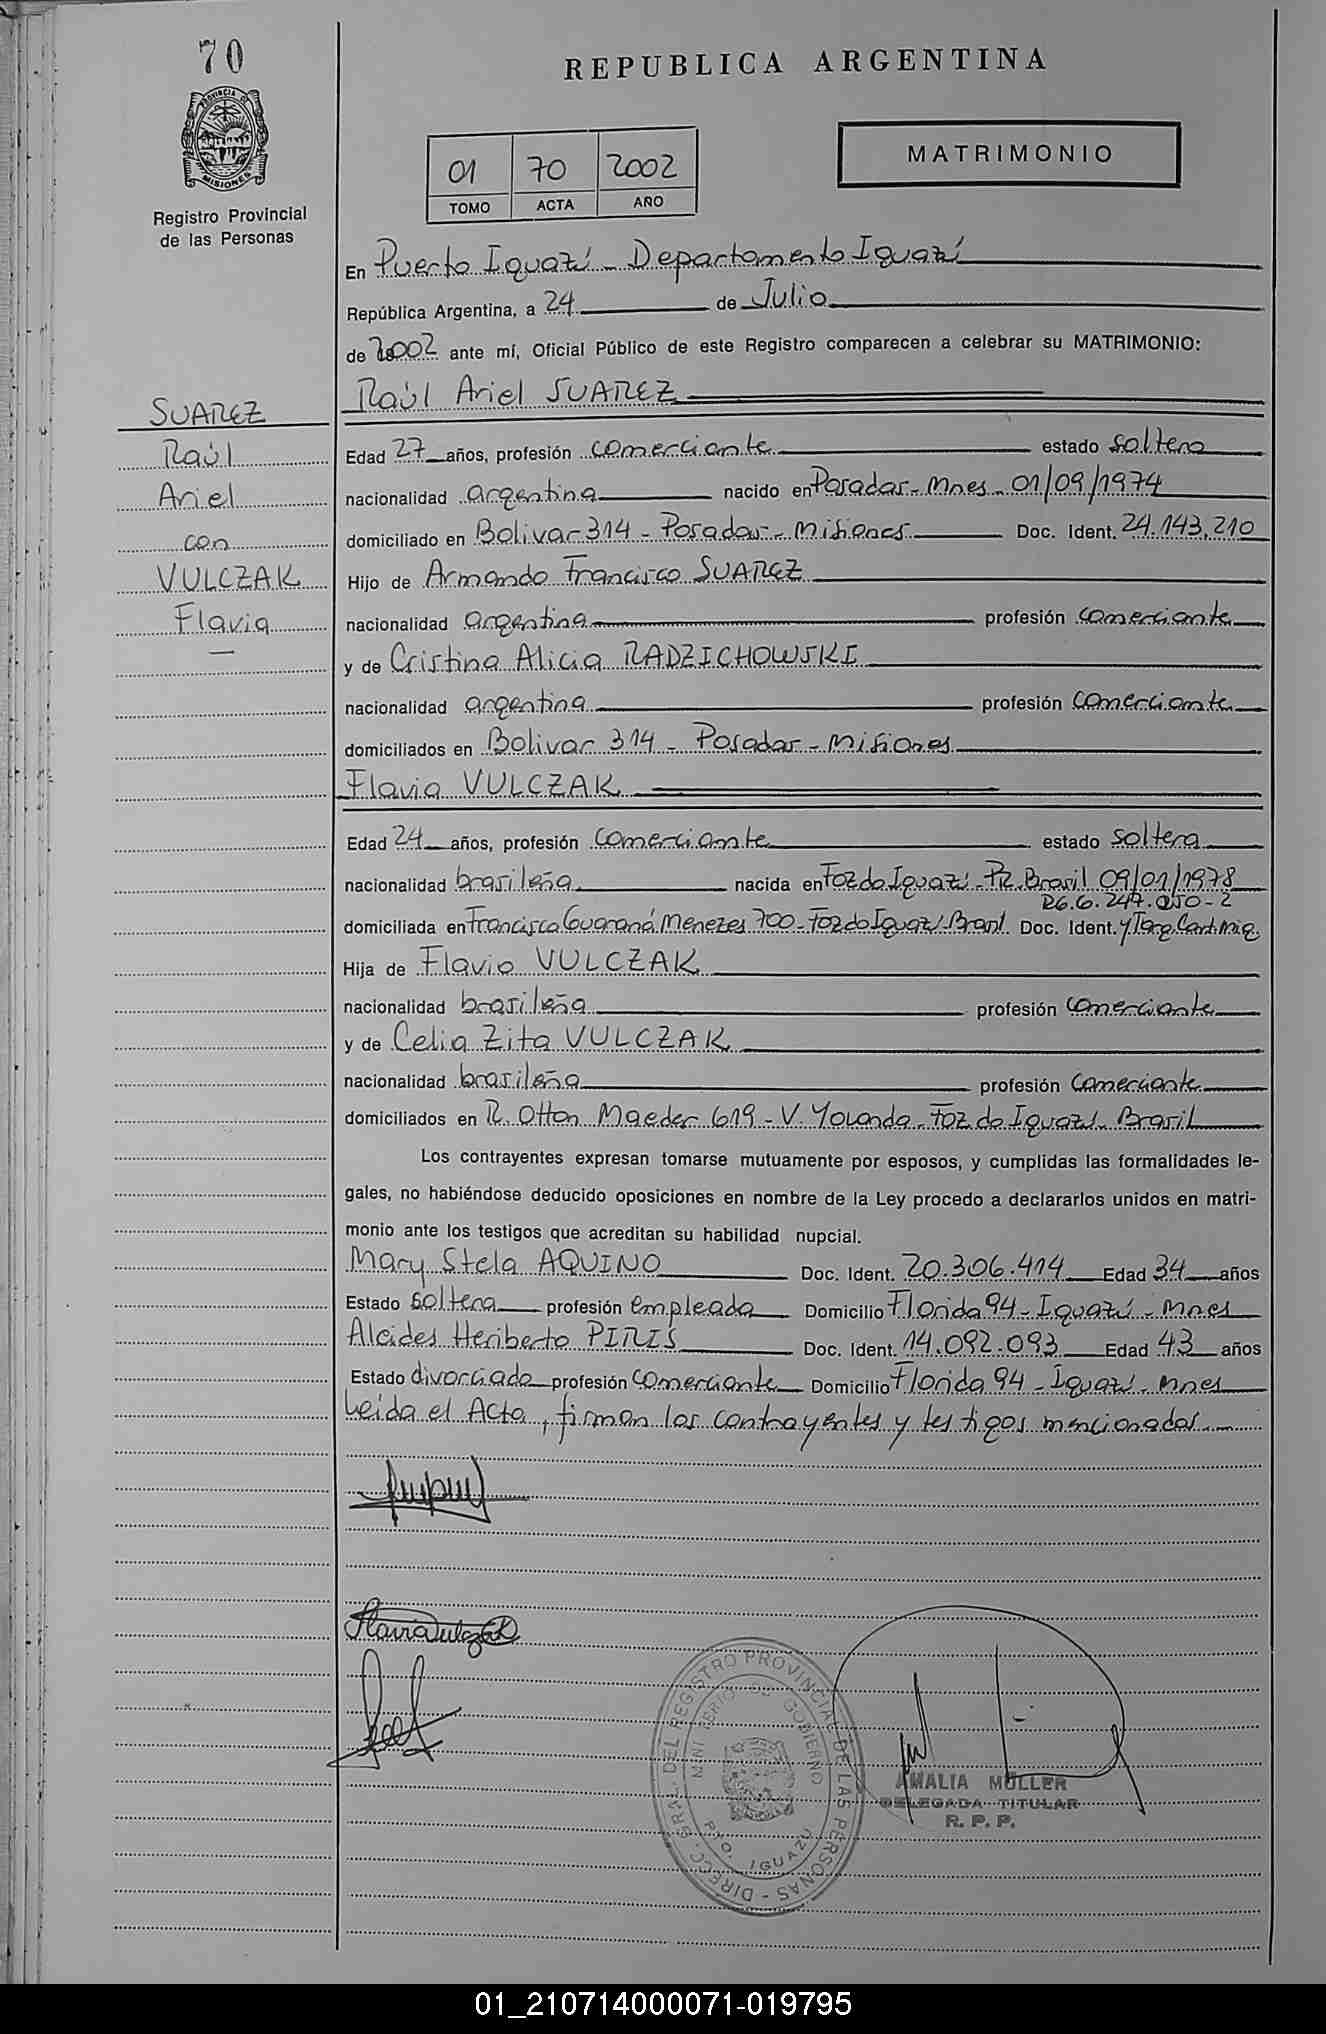 70
REPUBLICA ARGENTINA
PROVINCIA DE MISIONES
Registro Provincial
de las Personas
01 70 2002
TOMO ACTA AÑO
MATRIMONIO
En Puerto Iguazú - Departamento Iguazú
República Argentina, a 24 de Julio
de 2002 ante mí, Oficial Público de este Registro comparecen a celebrar su MATRIMONIO:
Raúl Ariel SUAREZ
SUAREZ
Raúl
Ariel
con
VULCZAK
Flavia
Edad 27 años, profesión comerciante estado soltero
nacionalidad argentina nacido en Posadas - Mnes - 01/09/1974
domiciliado en Bolivar 314 - Posadas - Misiones Doc. Ident. 24.143.210
Hijo de Armando Francisco SUAREZ
nacionalidad argentina profesión comerciante
y de Cristina Alicia RADZICHOWSKI
nacionalidad argentina profesión comerciante
domiciliados en Bolivar 314 - Posadas - Misiones
Flavia VULCZAK
Edad 24 años, profesión comerciante estado soltera
nacionalidad brasileña nacida en Foz do Iguazú - PR. Brasil 09/01/1978
RG.6.247.050-2
domiciliada en Francisco Guaraná Menezes 700 - Foz do Iguazú Brasil Doc. Ident. y Tarq. Cart. Mig.
Hija de Flavio VULCZAK
nacionalidad brasileña profesión comerciante
y de Celia Zita VULCZAK
nacionalidad brasileña profesión comerciante
domiciliados en R. Otton Maeder 619 - V. Yolanda - Foz do Iguazú - Brasil
Los contrayentes expresan tomarse mutuamente por esposos, y cumplidas las formalidades le-
gales, no habiéndose deducido oposiciones en nombre de la Ley procedo a declararlos unidos en matri-
monio ante los testigos que acreditan su habilidad nupcial.
Mary Stela AQUINO Doc. Ident. 20.306.414 Edad 34 años
Estado soltera profesión empleada Domicilio Florida 94 - Iguazú - Mnes
Alcides Heriberto PIRIS Doc. Ident. 14.092.093 Edad 43 años
Estado divorciado profesión comerciante Domicilio Florida 94 - Iguazú - Mnes
Leida el Acta, firman los contrayentes y testigos mencionados
Flavia Vulczak
DIRECC. GRAL. DEL REGISTRO PROVINCIAL DE LAS PERSONAS
MINISTERIO DE GOBIERNO
PTO. IGUAZU
AMALIA MÜLLER
DELEGADA TITULAR
R. P. P.
01_210714000071-019795